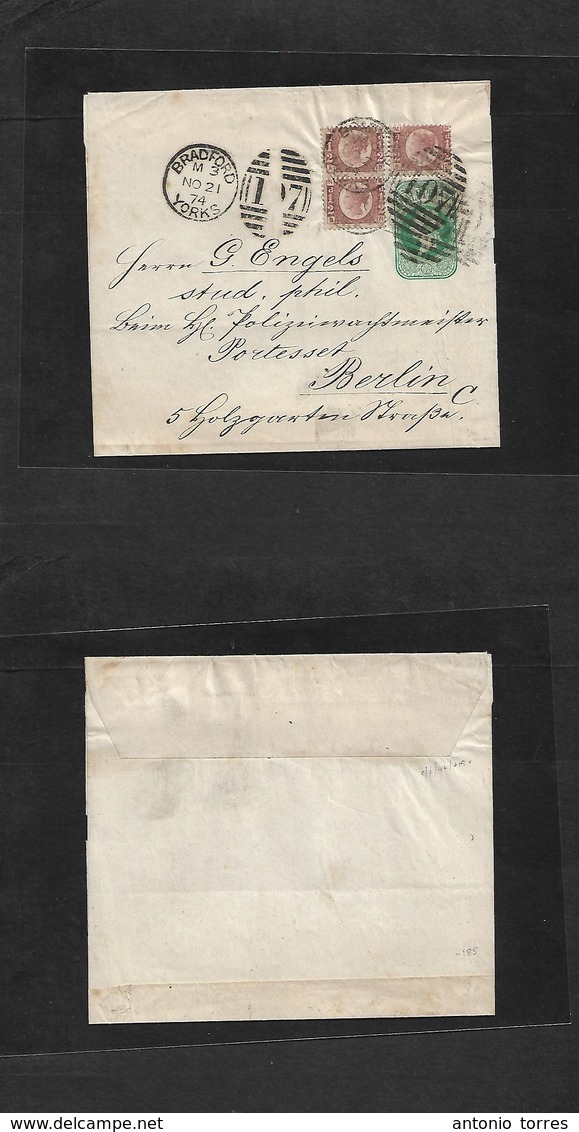 BRADFORD
M 3
NO 21
74
YORKS
107
107
Herrn G. Engels
stud. phil.
Beim H. Polizeiwachtmeister
Portesset
Berlin C
5 Holzgarten Straße.
-185
antonio torres